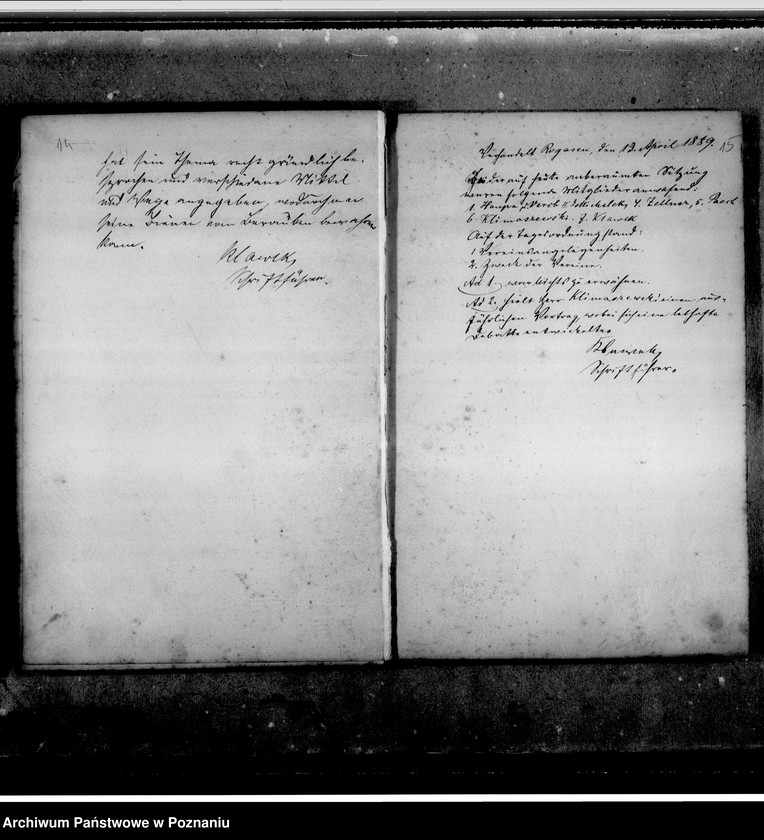 14
hat sein Thema recht gründlich be-
sprochen und verschiedene Mittel
und Wege angegeben, wodurch man
seine Bienen vom Berauben bewahren
kann.
Klawek,
Schriftführer.
15
Verhandelt Rogasen, den 13. April 1889.
In der auf heute anberaumten Sitzung
waren folgende Mitglieder anwesend:
4. Zellner, 5.
6. Klimaszewski. 7. Klawek
Auf der Tagesordnung stand:
1. Vereinsangelegenheiten.
2. Zweck der Vereine.
Ad 1. war Nichts zu erwähnen.
Ad 2. hielt Herr Klimaszewski einen aus-
führlichen Vortrag, wobei sich eine lebhafte
Debatte entwickelte.
Klawek,
Schriftführer.
Archiwum Państwowe w Poznaniu